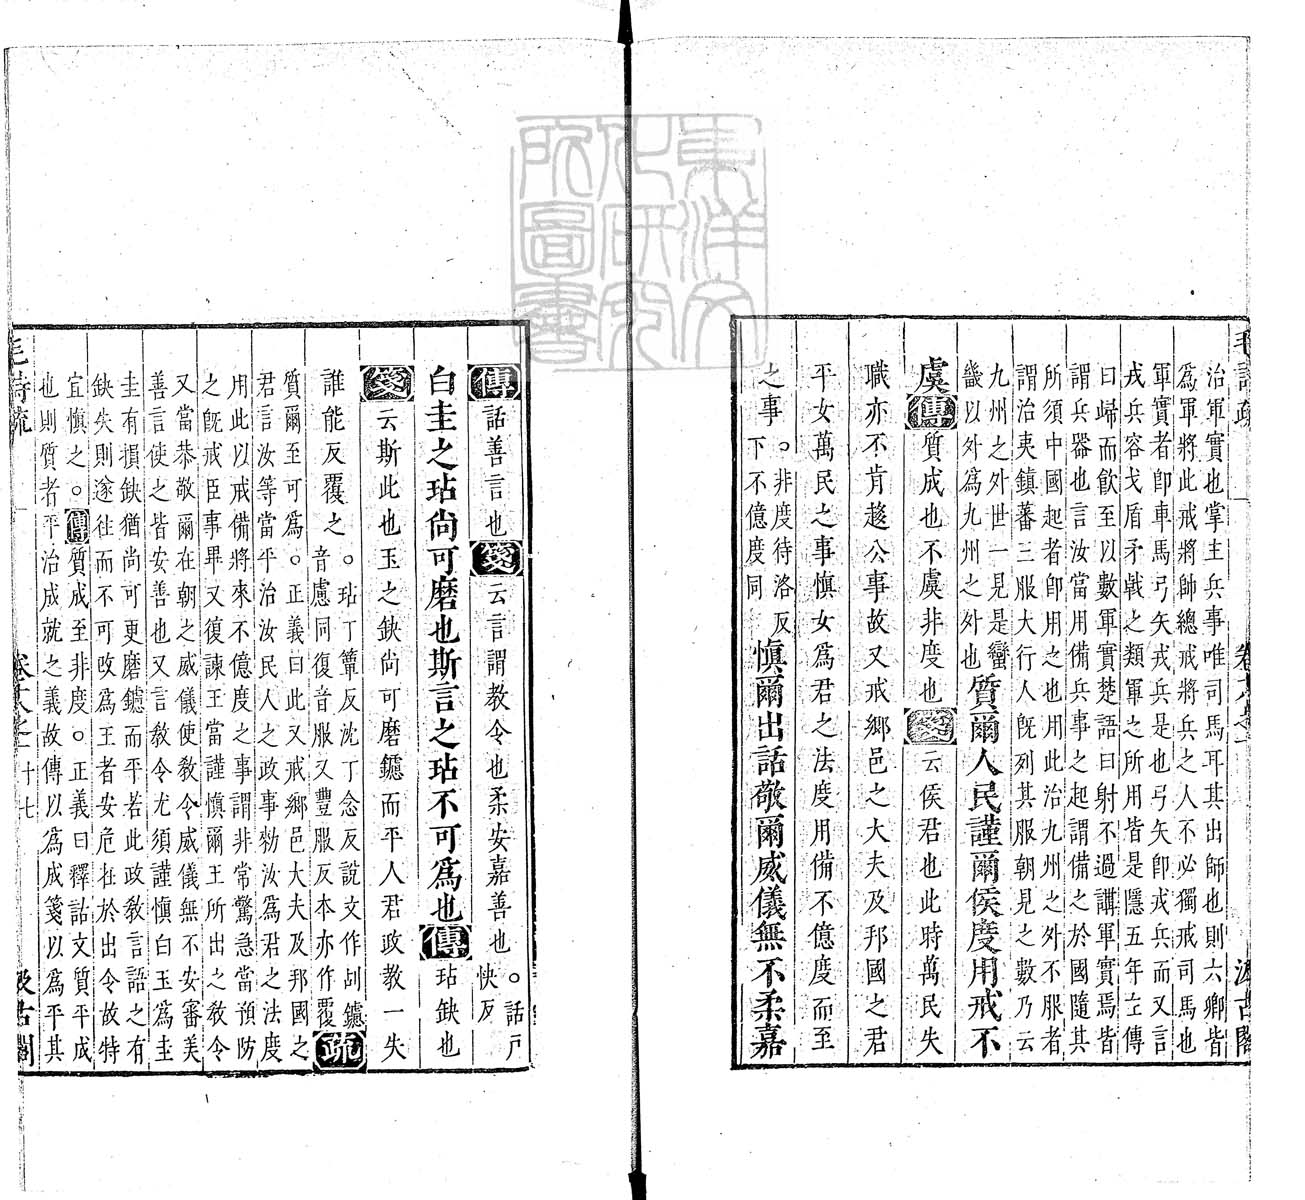 治軍實也掌主兵事唯司馬耳其出師也則六卿皆
爲軍將此戒將帥總戒將兵之人不必獨戒司馬也
軍實者卽車馬弓矢戎兵是也弓矢卽戎兵而又言
戎兵容戈盾矛戟之類軍之所用皆是隱五年左傳
曰歸而飮至以數軍實楚語曰射不過講軍實焉皆
謂兵器也言汝當用備兵事之起謂備之於國隨其
所須中國起者卽用之也用此治九州之外不服者
謂治夷鎮蕃三服大行人旣列其服朝見之數乃云
九州之外世一見是蠻
畿以外爲九州之外也
質爾人民謹爾侯度用戒不
虞傳質成也不虞非度也箋云侯君也此時萬民失
職亦不肯趍公事故又戒鄉邑之大夫及邦國之君
平女萬民之事愼女爲君之法度用備不億度而至
之事。非度待洛反
下不億度同
愼爾出話敬爾威儀無不柔嘉
傳話善言也箋云言謂教令也柔安嘉善也。話戸
快反
白圭之玷尙可磨也斯言之玷不可爲也傳玷缺也
箋云斯此也玉之缺尙可磨鑢而平人君政教一失
誰能反覆之。玷丁簟反沈丁念反說文作㓠鑢
音慮同復音服又豐服反本亦作覆疏
質爾至可爲。正義曰此又戒鄉邑大夫及邦國之
君言汝等當平治汝民人之政事勑汝爲君之法度
用此以戒備將來不億度之事謂非常驚急當預防
之旣戒臣事畢又復諫王當謹愼爾王所出之敎令
又當恭敬爾在朝之威儀使敎令威儀無不安審美
善言使之皆安善也又言敎令尤須謹愼白玉爲圭
圭有損缺猶尙可更磨鑢而平若此政敎言語之有
缺失則遂往而不可改爲王者安危在於出令故特
宜愼之。傳質成至非度。正義曰釋詁文質平成
也則質者平治成就之義故傳以爲成箋以爲平其
毛詩疏
十七
汲古閣